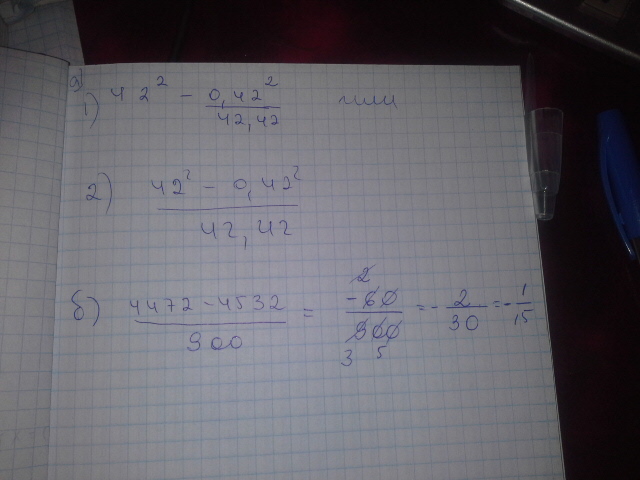 а)
1) 42² - 0,42²/42,42 или
2) (42² - 0,42²)/42,42
б) (4472 - 4532)/900 = -60/900 = -2/30 = -1/15
2
3 5